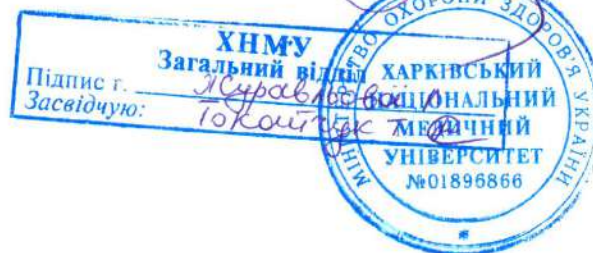 ХНМУ
Загальний відділ
Підпис г.
Засвідчую:
МІНІСТЕРСТВО ОХОРОНИ ЗДОРОВ'Я УКРАЇНИ
ХАРКІВСЬКИЙ
НАЦІОНАЛЬНИЙ
МЕДИЧНИЙ
УНІВЕРСИТЕТ
№01896866